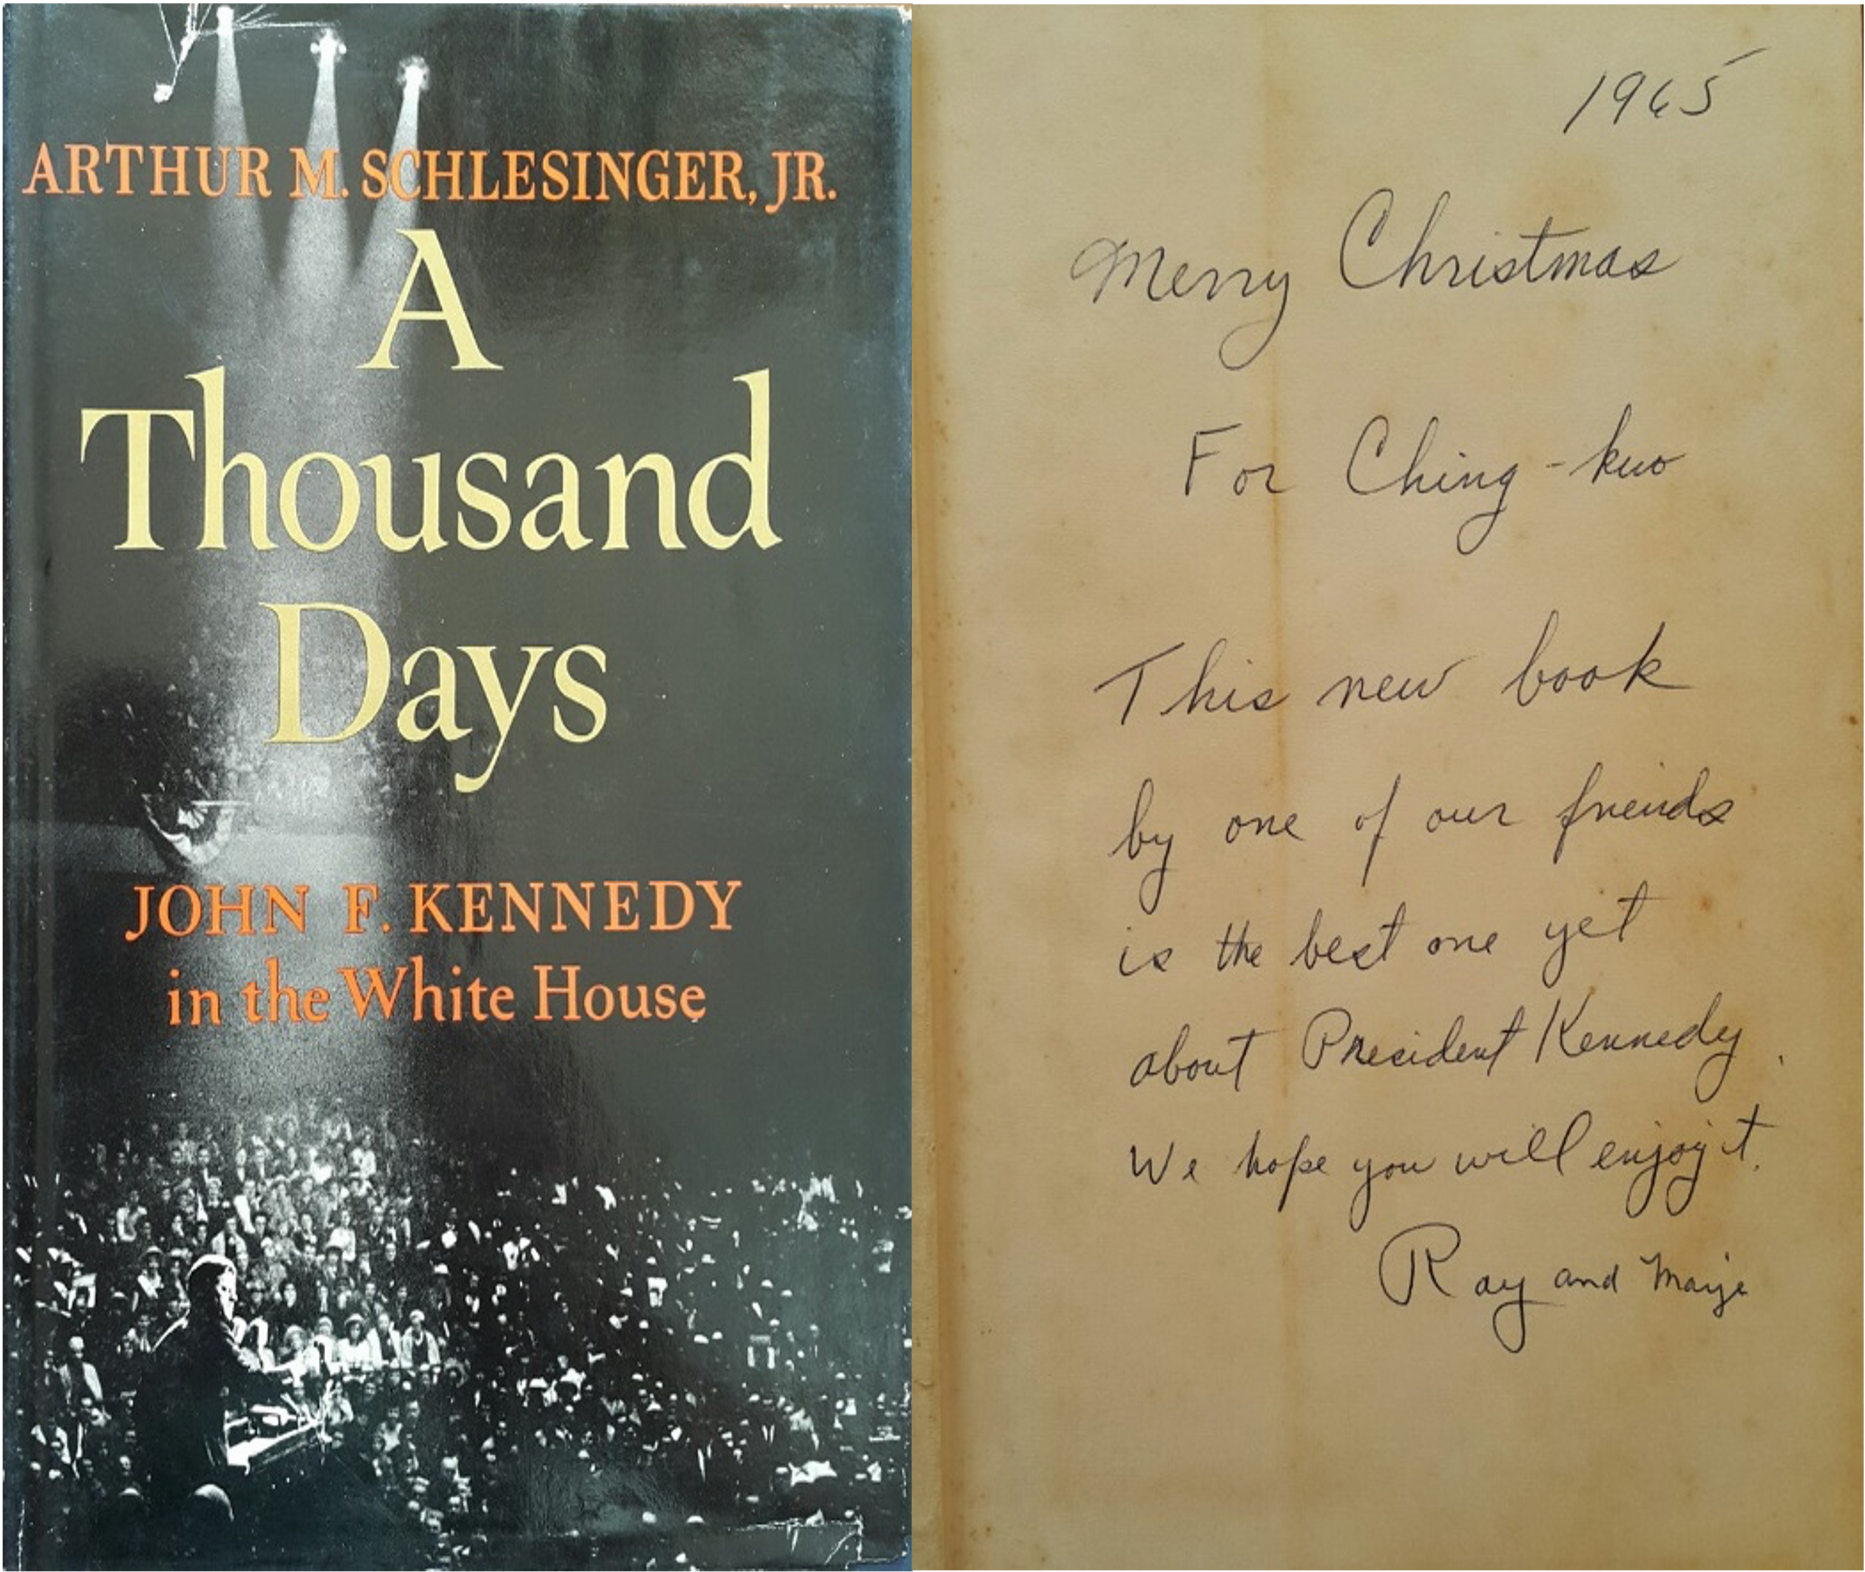 ARTHUR M. SCHLESINGER, JR.
A
Thousand
Days
JOHN F. KENNEDY
in the White House
1965
Merry Christmas
For Ching-kuo
This new book
by one of our friends
is the best one yet
about President Kennedy.
We hope you will enjoy it.
Ray and Marje